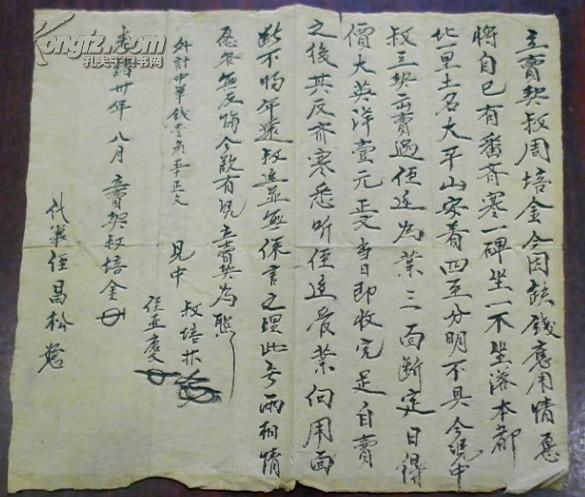 立賣契叔周培金今因缺錢應用情愿
將自己有番薺寮一碑坐一不坐落本都
北一里土名大平山安着四至分明不具今晚中
叔立契一布賣過侄邊為業三面斷定日得
價大英洋壹元正又當日即收完足自賣
之後其反齐寮悉听侄邊管業向用面
断不喝年遠叔邊並無係言之理此各两相情
愿各無反悔今欲有凭立賣契為照
外計中筆錢書有筆正文
見中 叔培
侄孟慶文
光緒卅年八月 立賣契叔培金
代筆侄昌松
Kongfz.com
孔夫子旧书网